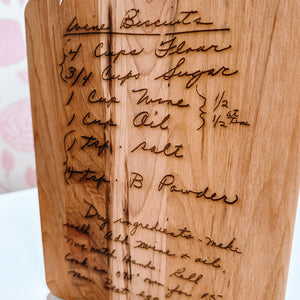 Wine Biscuits
4 Cups Flour
3/4 Cups Sugar
1 Cup Wine } 1/2 at
1 Cup Oil } 1/2 time
1 tsp. salt
4 tsp. B Powder
Dry ingredients - make
well. Add wine & oil.
Mix with hands. Roll
Cook 375° for 25
Min. Beat egg